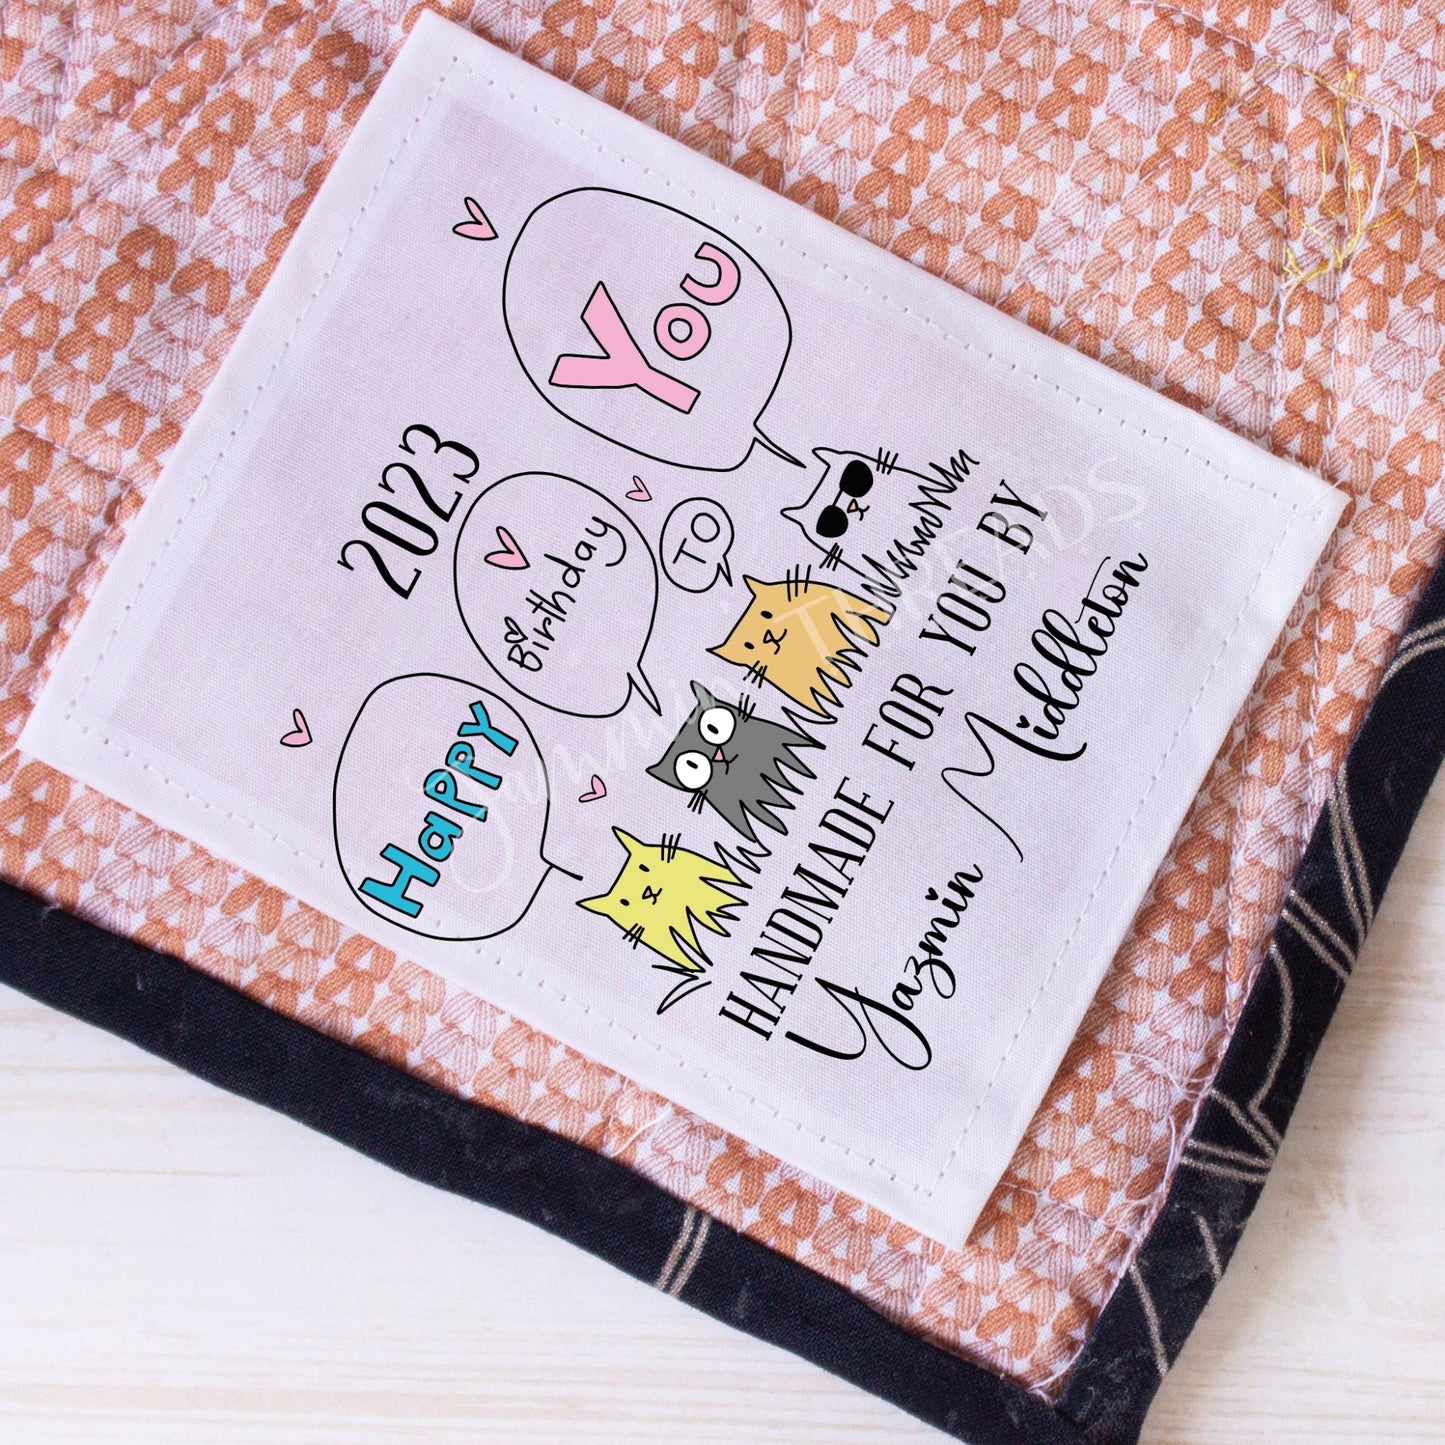 2023
Happy
Birthday
TO
You
HANDMADE FOR YOU BY
Yazmin Middleton
Yazmin's THREADS